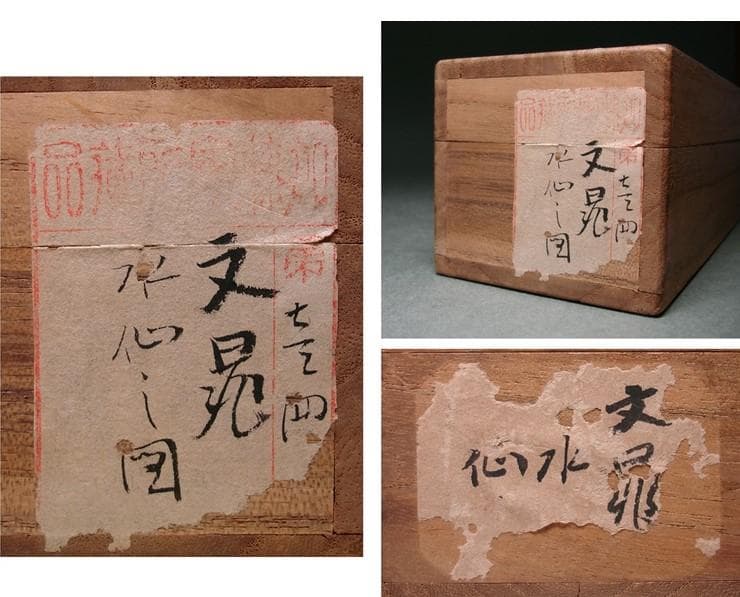 第壱四
文晁
水仙之図
第壱四
文晁
水仙之図
文晁
水仙